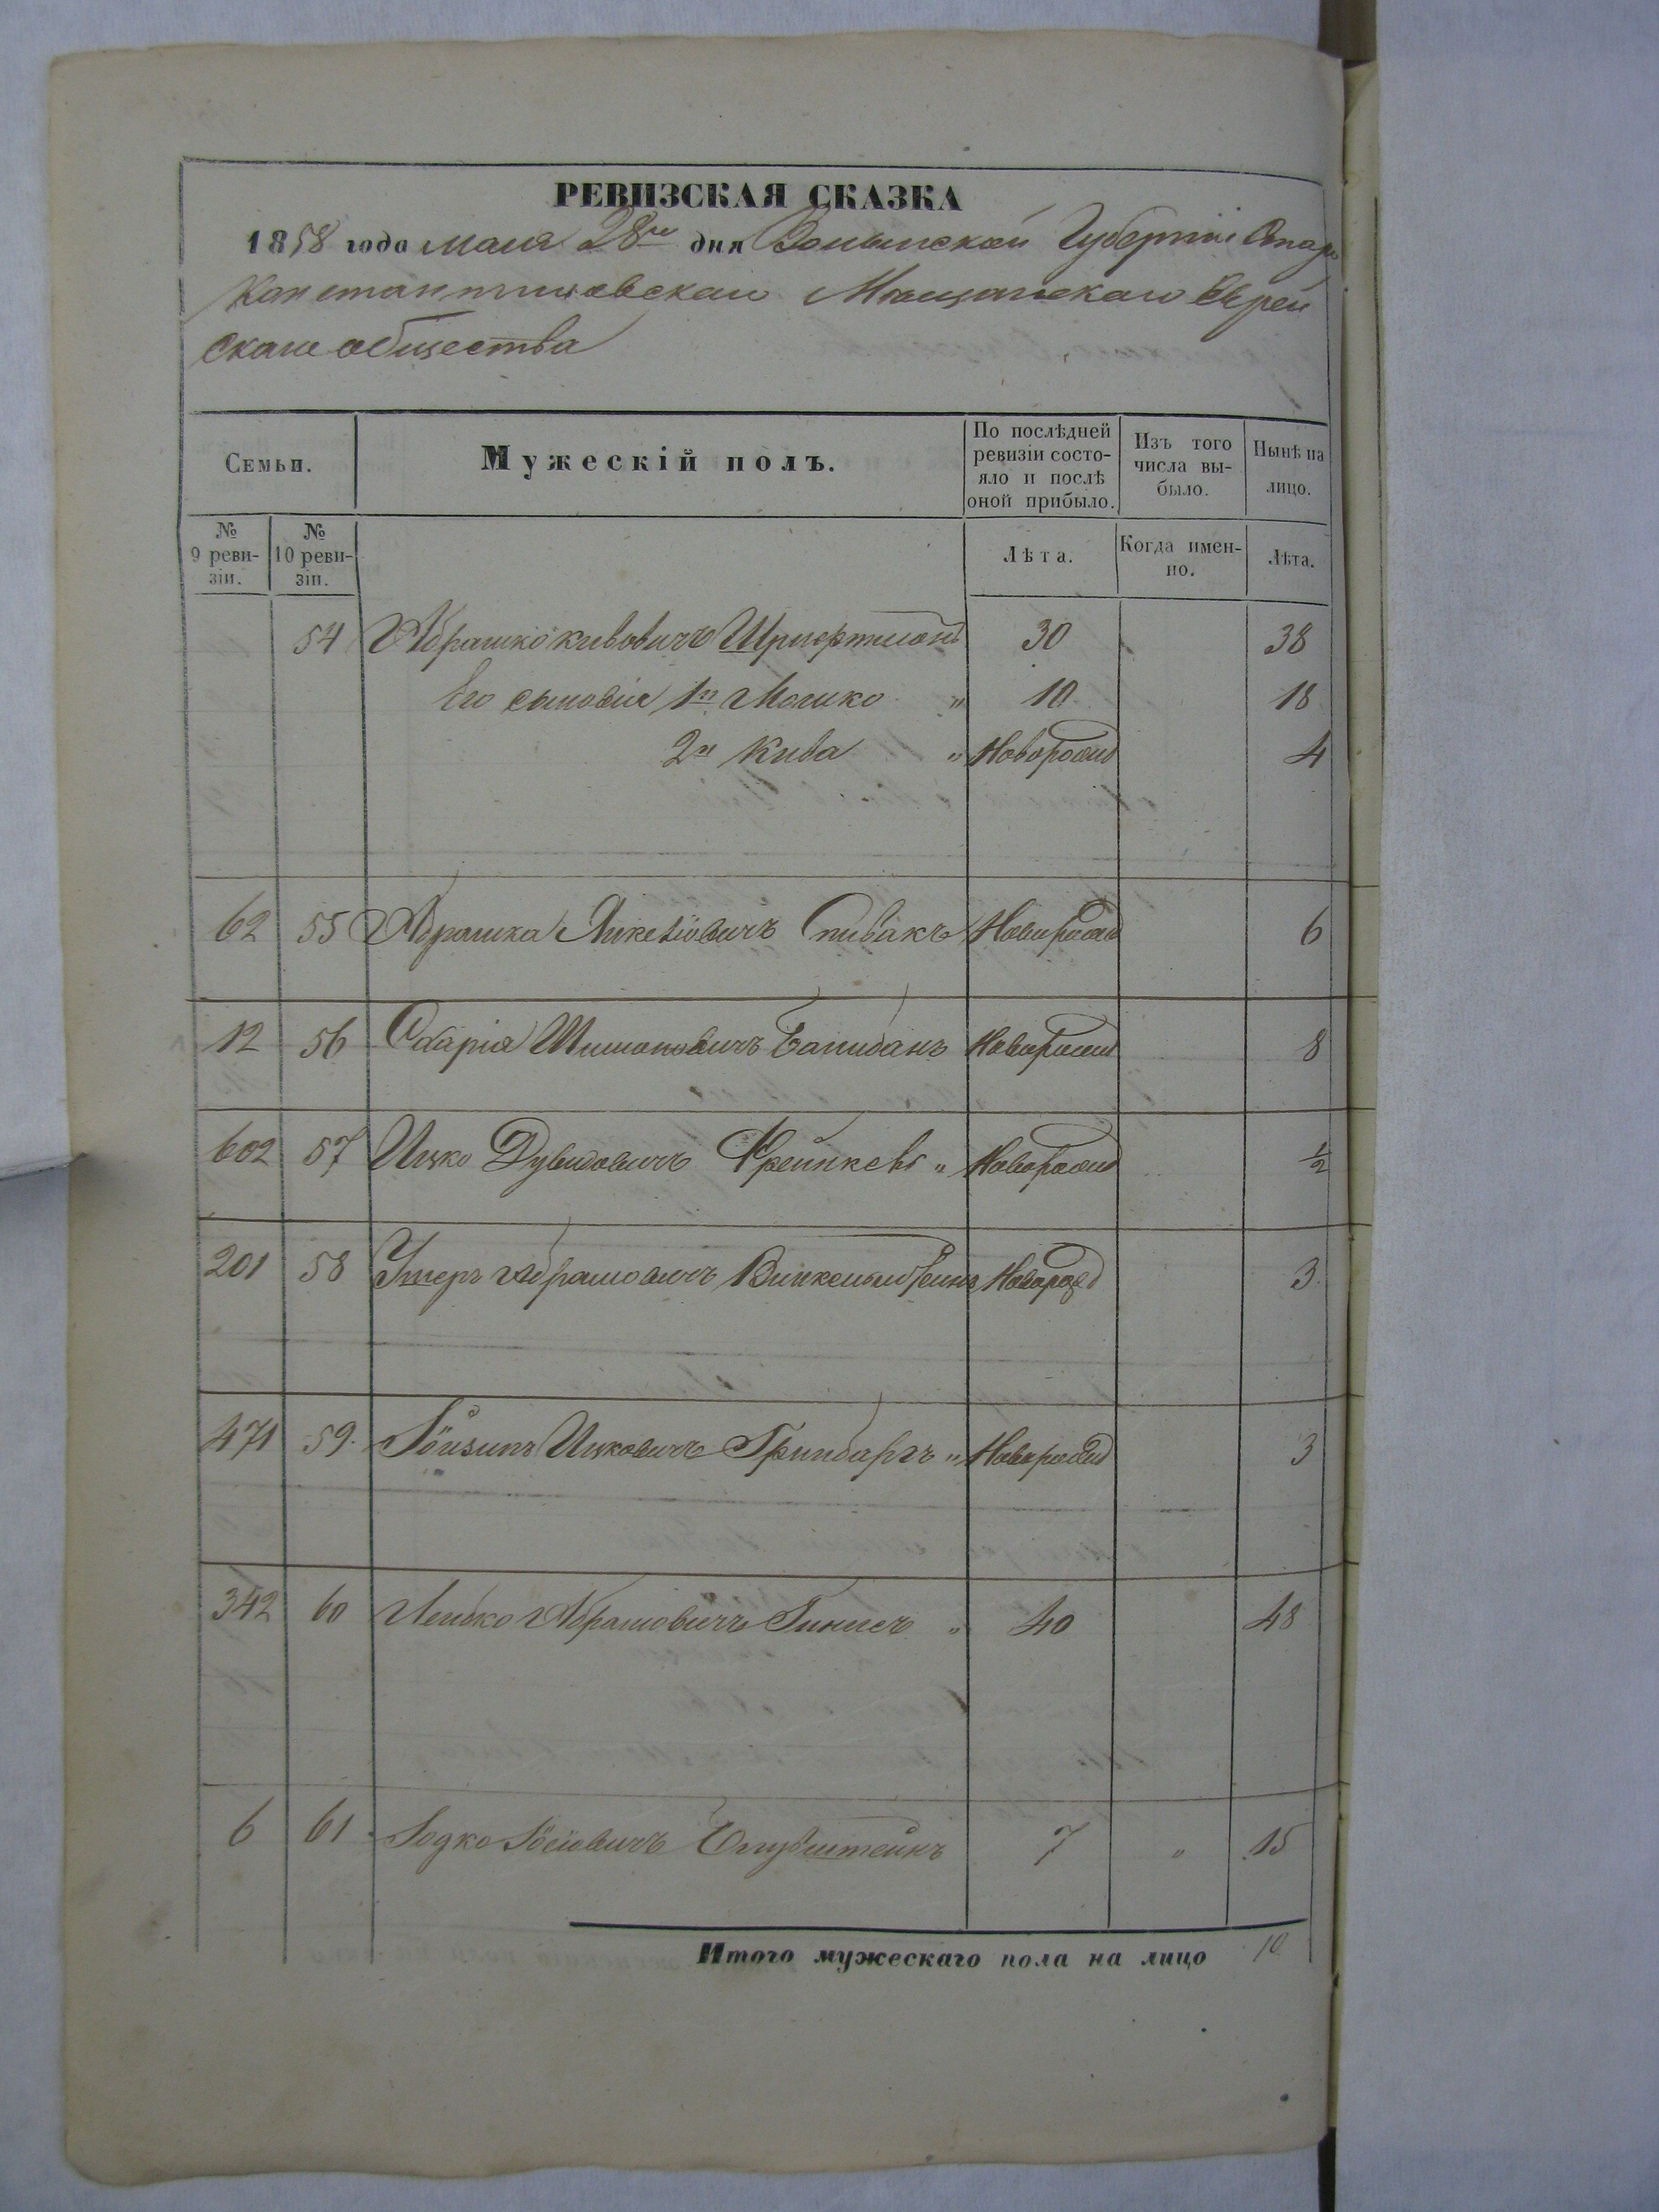 РЕВИЗСКАЯ СКАЗКА
1858 года мая 28го дня Волынской Губерніи Старо
Константиновскаго Мещанскаго Еврей
скаго общества
Семьи.
Мужескій полъ.
По послѣдней ревизіи состо-
яло и послѣ оной прибыло.
Изъ того числа вы-
было.
Нынѣ на лицо.
№ 9 реви-
зіи.
№ 10 реви-
зіи.
Лѣта.
Когда имен-
но.
Лѣта.
54 Абрашко Кивовичъ 30 38
Его сыновья 1й Мошко " 10 18
2й Кива " Новорожд 4
62 55 Абрашка Спивакъ Новорожд 6
12 56 Шимоновичъ Новорожд 8
602 57 Ицко Дувидовичъ " Новорожд ½
201 58 Абрамовичъ Новорожд 3
471 59. Ицковичъ Гринбаргъ " Новорожд 3
342 60 Лейбко Абрамовичъ " 40 48
6 61 7 " 15
Итого мужескаго пола на лицо 10